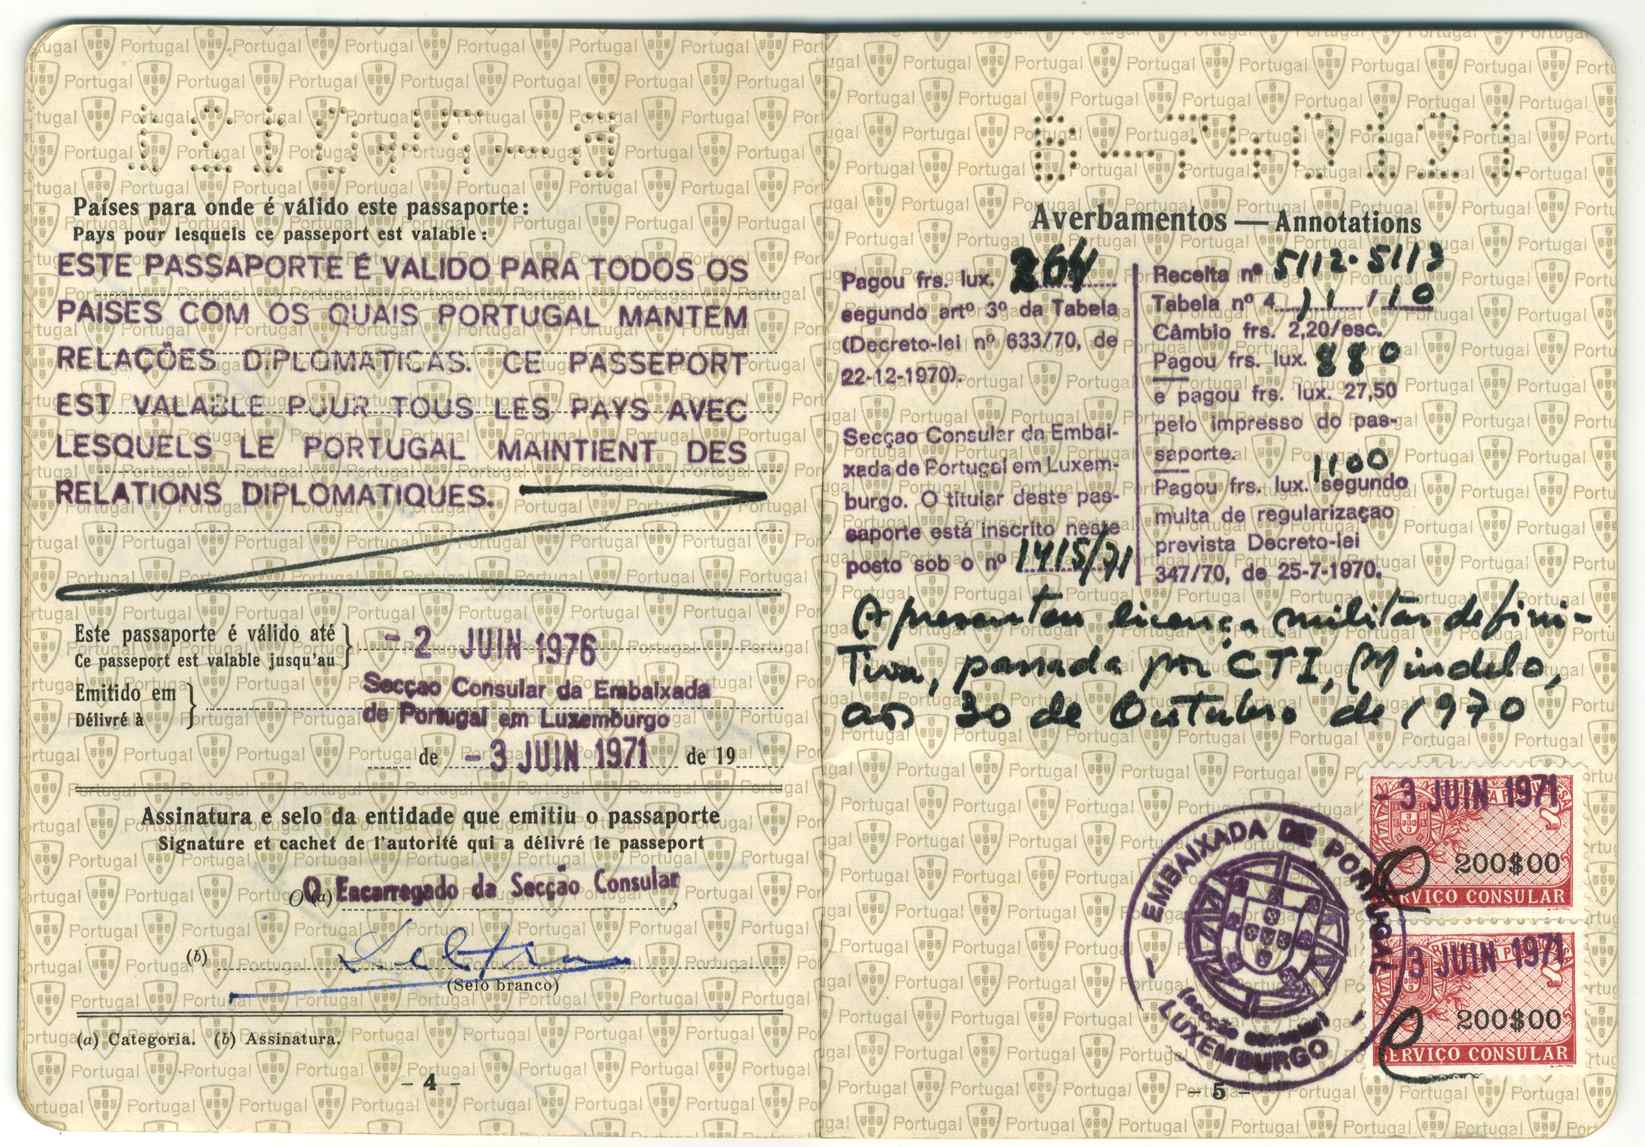 Países para onde é válido este passaporte:
Pays pour lesquels ce passeport est valable:
ESTE PASSAPORTE É VALIDO PARA TODOS OS
PAISES COM OS QUAIS PORTUGAL MANTEM
RELAÇÕES DIPLOMATICAS. CE PASSEPORT
EST VALABLE POUR TOUS LES PAYS AVEC
LESQUELS LE PORTUGAL MAINTIENT DES
RELATIONS DIPLOMATIQUES.
Este passaporte é válido até
Ce passeport est valable jusqu'au
- 2 JUIN 1976
Emitido em
Délivré à
Secçao Consular da Embaixada
de Portugal em Luxemburgo
de - 3 JUIN 1971 de 19
Assinatura e selo da entidade que emitiu o passaporte
Signature et cachet de l'autorité qui a délivré le passeport
O (a) O Encarregado da Secção Consular
(b)
(Selo branco)
(a) Categoria. (b) Assinatura.
- 4 -
B-740121
Averbamentos — Annotations
Pagou frs. lux. 264
segundo artº 3º da Tabela
(Decreto-lei nº 633/70, de
22-12-1970).
Secçao Consular da Embai-
xada de Portugal em Luxem-
burgo. O titular deste pas-
saporte está inscrito neste
posto sob o nº 1415/71
Receita nº 5112-5113
Tabela nº 4 11/10
Câmbio frs. 2,20/esc.
Pagou frs. lux. 880
e pagou frs. lux. 27,50
pelo impresso do pas-
saporte.
Pagou frs. lux. 1100 segundo
multa de regularizaçao
prevista Decreto-lei
347/70, de 25-7-1970.
Apresentou licença militar defini-
tiva, passada por CTI, Mindelo,
aos 30 de Outubro de 1970
3 JUIN 1971
200$00
SERVIÇO CONSULAR
3 JUIN 1971
200$00
SERVIÇO CONSULAR
EMBAIXADA DE PORTUGAL
(secção consular)
LUXEMBURGO
- 5 -